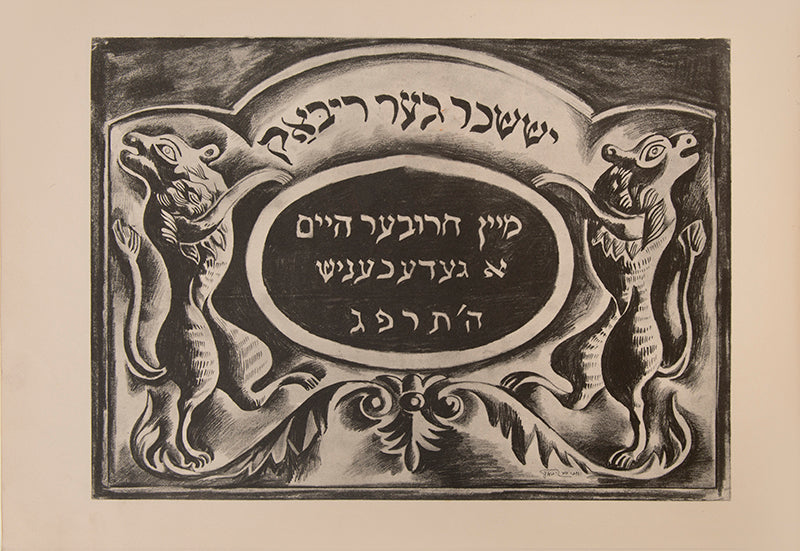 יששכר בער ריבאק
מיין חרובער היים
א געדעכעניש
ה'תרפג